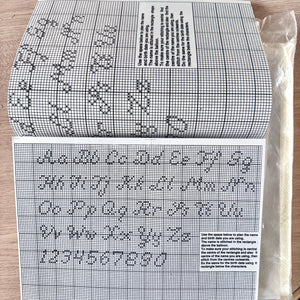 Ee Ff Gg
Mm Nn
Tt Uu
Zz
0
Use the space below to plan the name
and birth date you are using.
The name is stitched in the rectangle
above the balloon.
To make sure your stitching is central
centre of the name you are using, then
stitch from the centres outwards.
Do the same for the birth date using
rectangle below the characters.
Aa Bb Cc Dd Ee Ff Gg
Hh Ii Jj Kk Ll Mm Nn
Oo Pp Qq Rr Ss Tt Uu
Vv Ww Xx Yy Zz
1234567890
Use the space below to plan the name
and birth date you are using.
The name is stitched in the rectangle
above the balloon.
To make sure your stitching is central
the centre of the rectangle and the
centre of the name you are using, then
stitch from the centres outwards.
Do the same for the birth date using
rectangle below the characters.